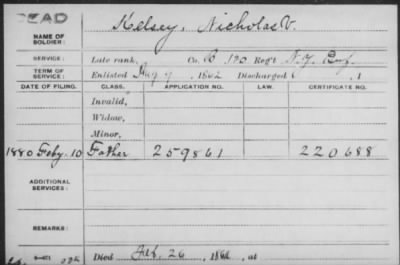 DEAD
NAME OF SOLDIER: Kelsey, Nicholas V.
SERVICE: Late rank, Co. B 120 Reg't N.Y. Inf.
TERM OF SERVICE: Enlisted Aug 9, 1862 Discharged , 1
DATE OF FILING. CLASS. APPLICATION NO. CERTIFICATE NO.
Invalid,
Widow,
Minor,
1880 Feby. 10 Father 259861 220688
ADDITIONAL SERVICES:
REMARKS:
Died Feb. 26, 186 , at